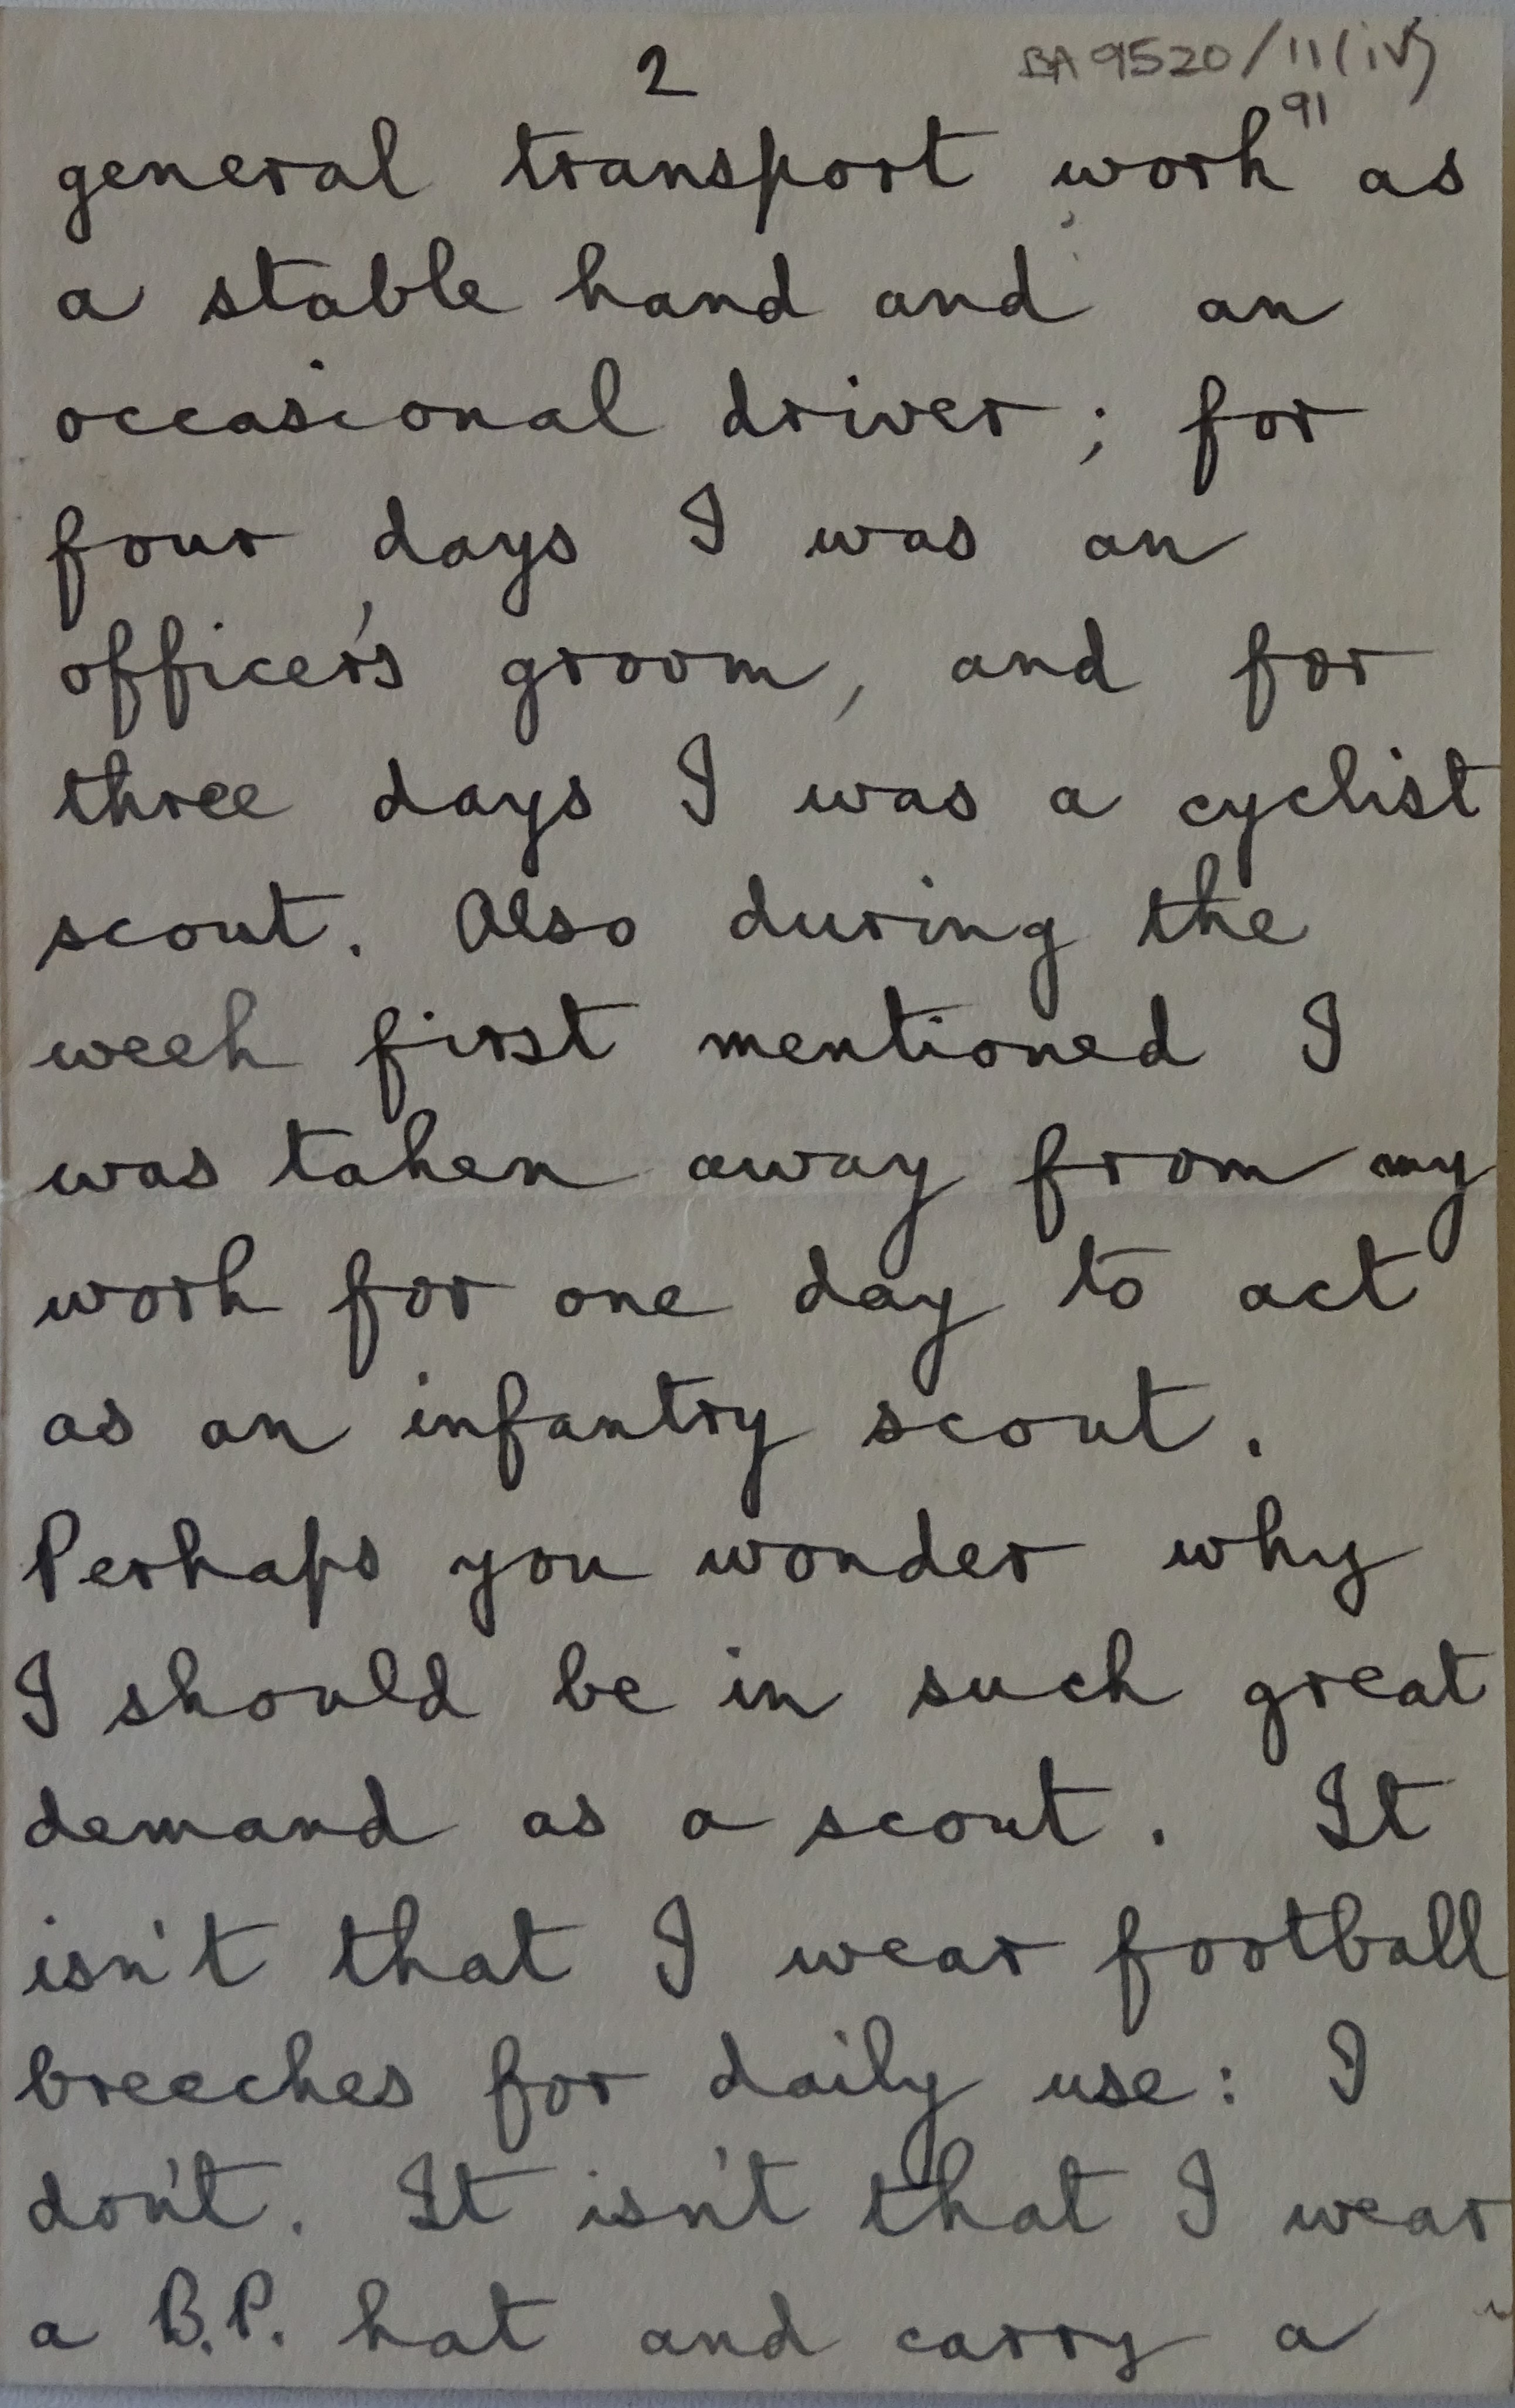 2
BA 9520/11(iv)
91
general transport work as
a stable hand and an
occasional driver; for
four days I was an
officer's groom, and for
three days I was a cyclist
scout. Also during the
week first mentioned I
was taken away from my
work for one day to act
as an infantry scout.
Perhaps you wonder why
I should be in such great
demand as a scout. It
isn't that I wear football
breeches for daily use: I
don't. It isn't that I wear
a B.P. hat and carry a